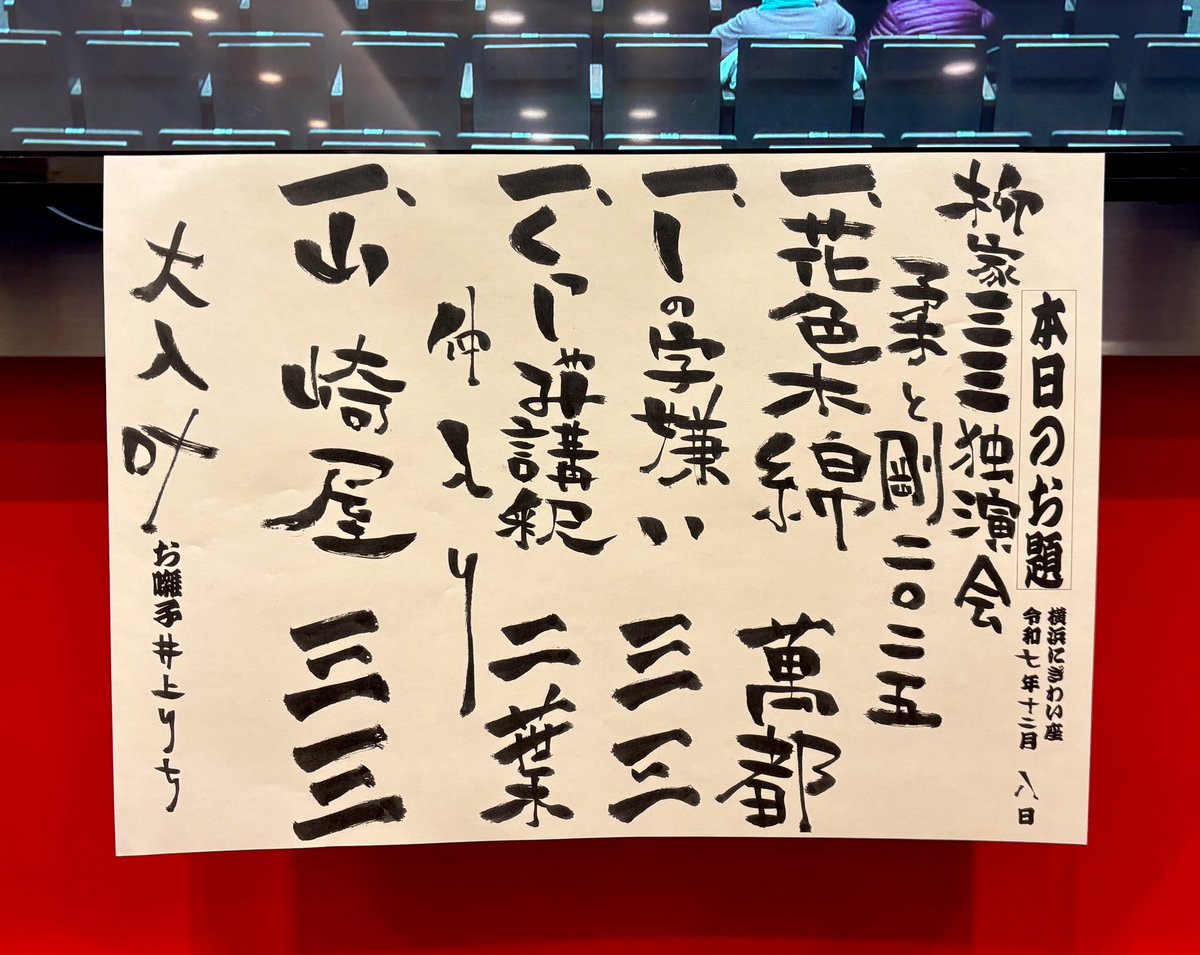 本日のお題
横浜にぎわい座
令和七年十二月 八日
柳家三三独演会
柔と剛 二〇二五
一、花色木綿 萬都
一、しの字嫌い 三三
一、くしゃみ講釈 二葉
仲入り
一、山崎屋 三三
大入叶
お囃子 井上りち